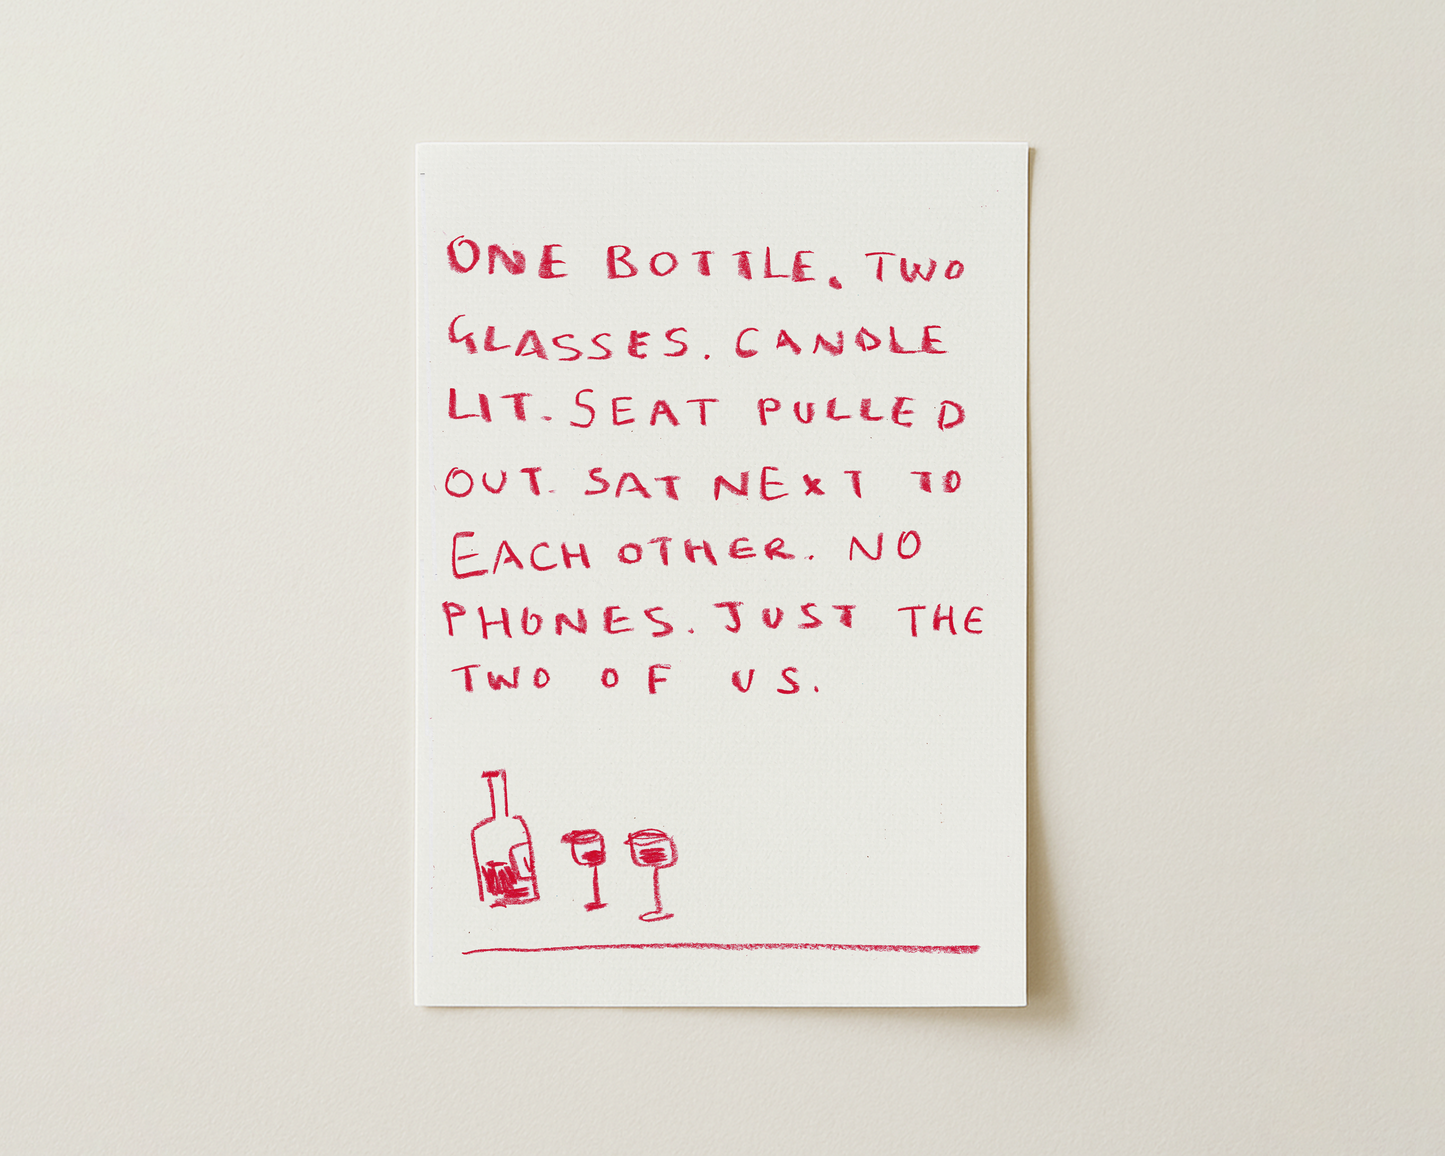 ONE BOTTLE. TWO
GLASSES. CANDLE
LIT. SEAT PULLED
OUT. SAT NEXT TO
EACH OTHER. NO
PHONES. JUST THE
TWO OF US.